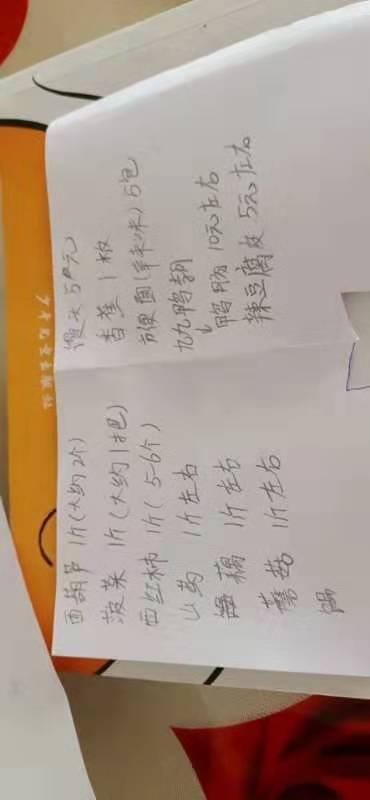 西葫芦 1斤(大约2个)
菠菜 1斤(大约1把)
西红柿 1斤(5-6个)
山药 1斤左右
藕 1斤左右
蘑菇 1斤左右
馒头 5元
香蕉 1板
方便面 5包
九九鸭翅
鸭肠 10元左右
辣豆腐皮 5元左右
少年儿童出版社